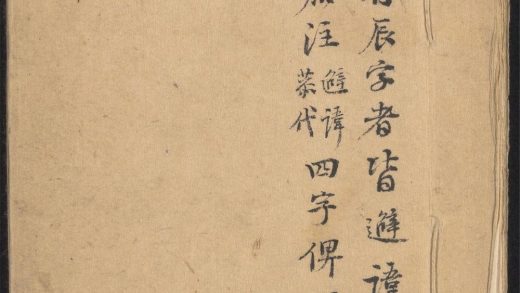 有辰字者皆避諱
加注避諱恭代四字俾